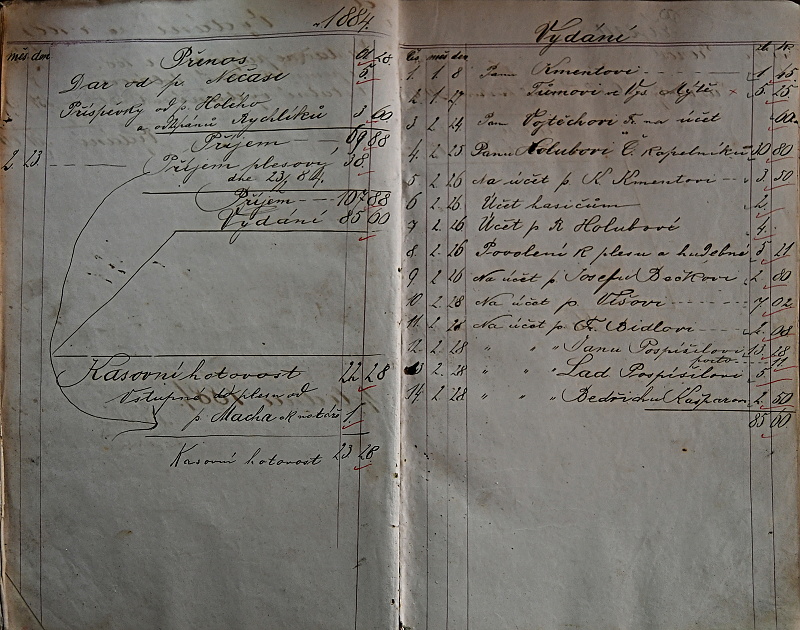 1884.
měs. den
Přenos
Dar od p. Nečase 5
Příspěvky od p. Holého
a od pánů Rychlíků 3 60
Příjem 69 88
2. 23 Příjem plesový 38.
dne 23/2 84.
Příjem 107 88
Vydání 85 60
Kasovní hotovost 22 28
Vstupné do plesu od
p. Macha 1
Kasovní hotovost 23 28
Vydání
Čís. měs. den zl. kr.
1. 1 8 Panu Kmentovi 1 45
2. 1. 17 Tůmovi ve Vys. Mýtě × 5 25
3 2 24 Pan Vojtěchovi Fr. na účet 60
4. 2 25 Panu Holubovi Č. kapelníku 10 80
5 2 26 Na účet p. K. Kmentovi 3 50
6 2 26 Účet hasičům 2
7 2 26 Účet p R Holubovi 4.
8. 2. 26 Povolení k plesu a hudebné 5 21
9 2 26 Na účet p. Josefu Bečkovi 2 80
10. 2 28 Na účet p. 7 02
11. 2 28 Na účet p. F. Bidlovi 2. 08
12. 2. 28 " " " Janu Pospíšilovi 13 28
porto 11
13 2. 28 " " " Lad Pospíšilovi 5
14 2 28 " " " Bedřichu Kašparovi 2. 50
85 60